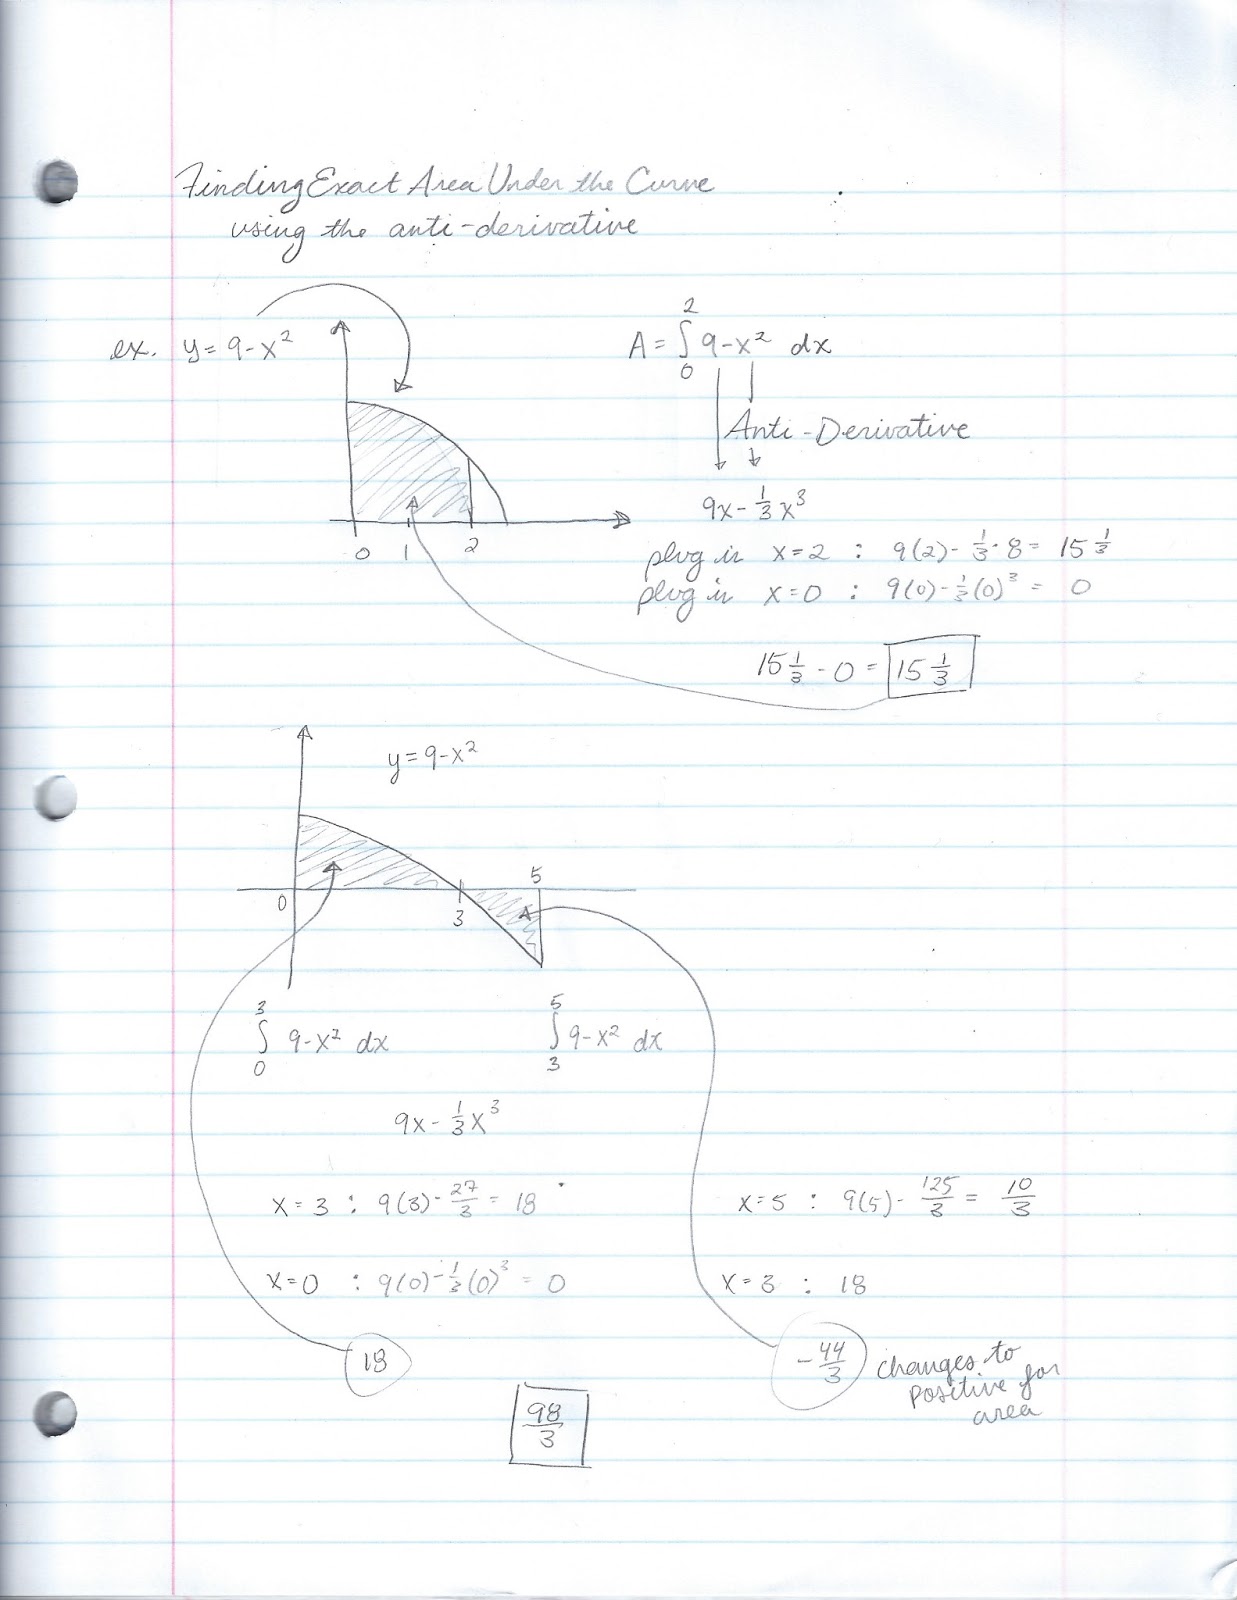 Finding Exact Area Under the Curve
using the anti-derivative
ex. y = 9-x²
A = ∫₀² 9-x² dx
Anti-Derivative
9x - 1/3 x³
0 1 2
plug in x=2 : 9(2) - 1/3 · 8 = 15 1/3
plug in x=0 : 9(0) - 1/3(0)³ = 0
15 1/3 - 0 = 15 1/3
y = 9-x²
0 3 5
∫₀³ 9-x² dx ∫₃⁵ 9-x² dx
9x - 1/3 x³
x=3 : 9(3) - 27/3 = 18
x=5 : 9(5) - 125/3 = 10/3
x=0 : 9(0) - 1/3(0)³ = 0
x=3 : 18
18
-44/3 changes to
positive for
area
98/3